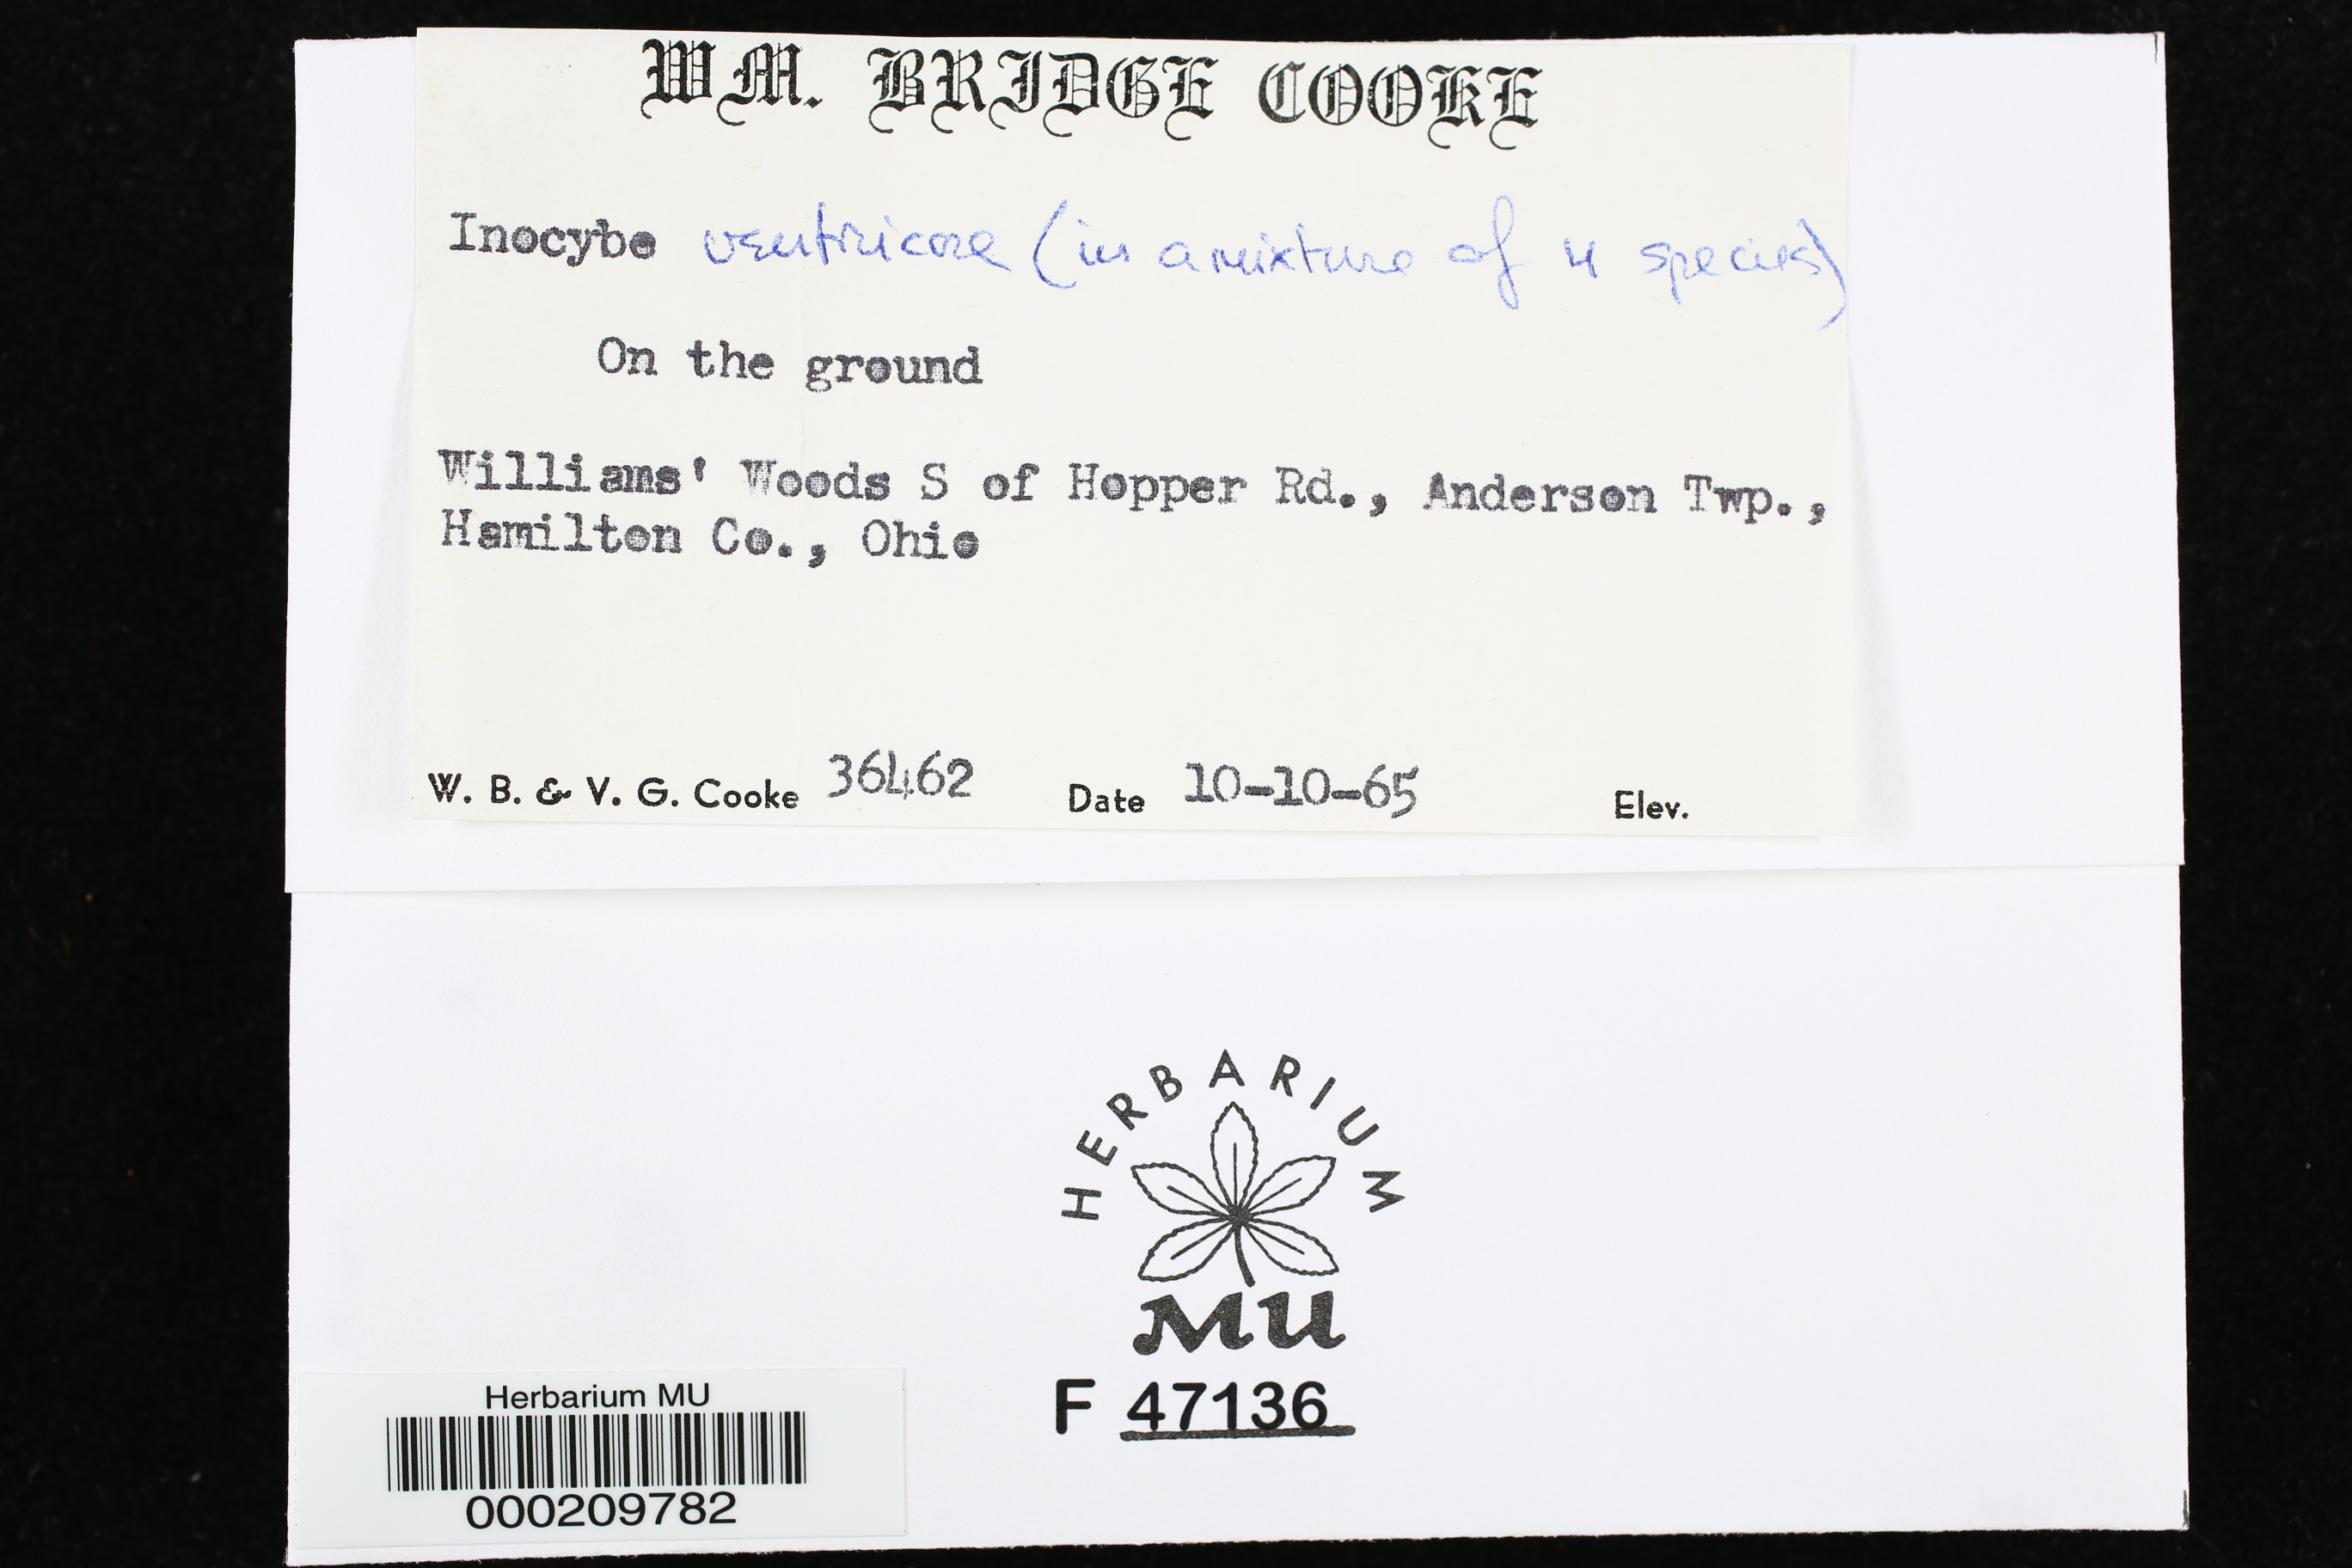 WM. BRIDGE COOKE
Inocybe ventricosa (in a mixture of 4 species)
On the ground
Williams' Woods S of Hopper Rd., Anderson Twp.,
Hamilton Co., Ohio
W. B. & V. G. Cooke 36462 Date 10-10-65 Elev.
HERBARIUM
MU
F 47136
Herbarium MU
000209782